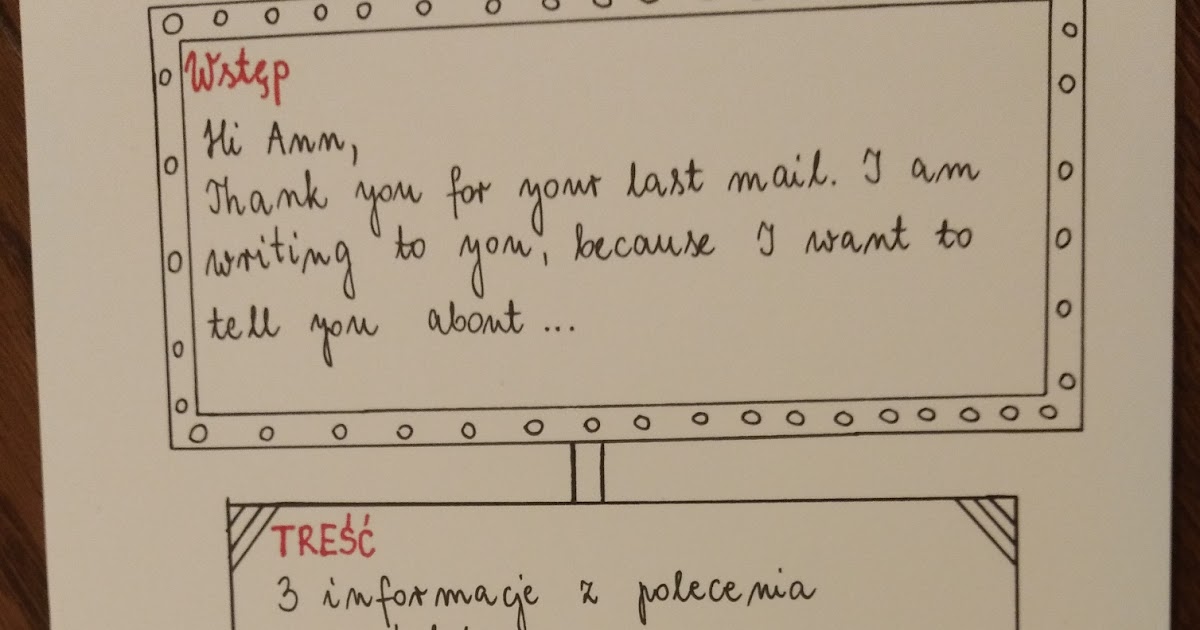 Wstęp
Hi Ann,
Thank you for your last mail. I am
writing to you, because I want to
tell you about ...
TREŚĆ
3 informacje z polecenia